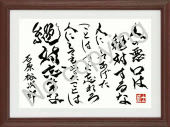 人の悪口は
絶対するな
人にしてあげた
ことはすぐ忘れろ
人にしてもらった
ことは
絶対忘れるな
石原裕次郎